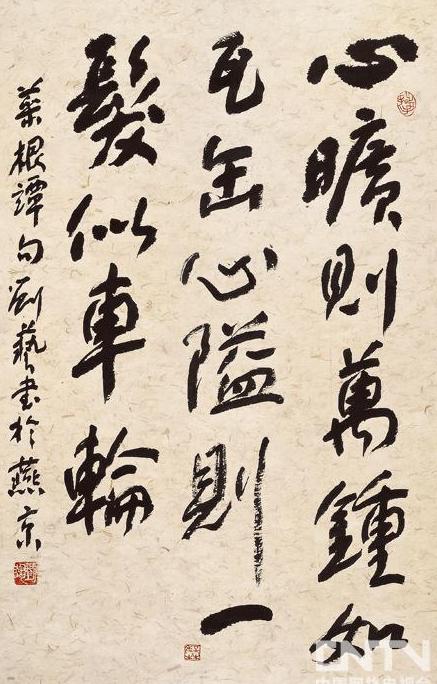 心曠則萬鍾如
瓦缶心隘則一
髮似車輪
菜根譚句劉藝書於燕京
CNTV
中国网络电视台